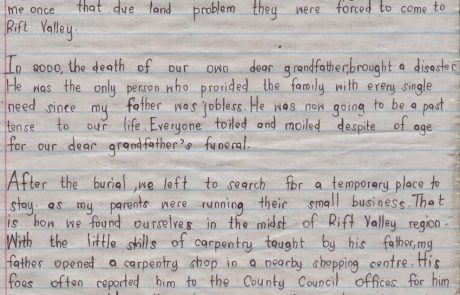 me once that due land problem they were forced to come to
Rift Valley.
In 2000, the death of our own dear grandfather, brought a disaster
He was the only person who provided the family with every single
need since my father was jobless. He was now going to be a past
tense to our life. Everyone toiled and moiled despite of age
for our dear grandfather's funeral.
After the burial, we left to search for a temporary place to
stay. as my parents were running their small business. That
is how we found ourselves in the midst of Rift Valley region.
With the little skills of carpentry taught by his father, my
father opened a carpentry shop in a nearby shopping centre. His
foes often reported him to the County Council offices for him